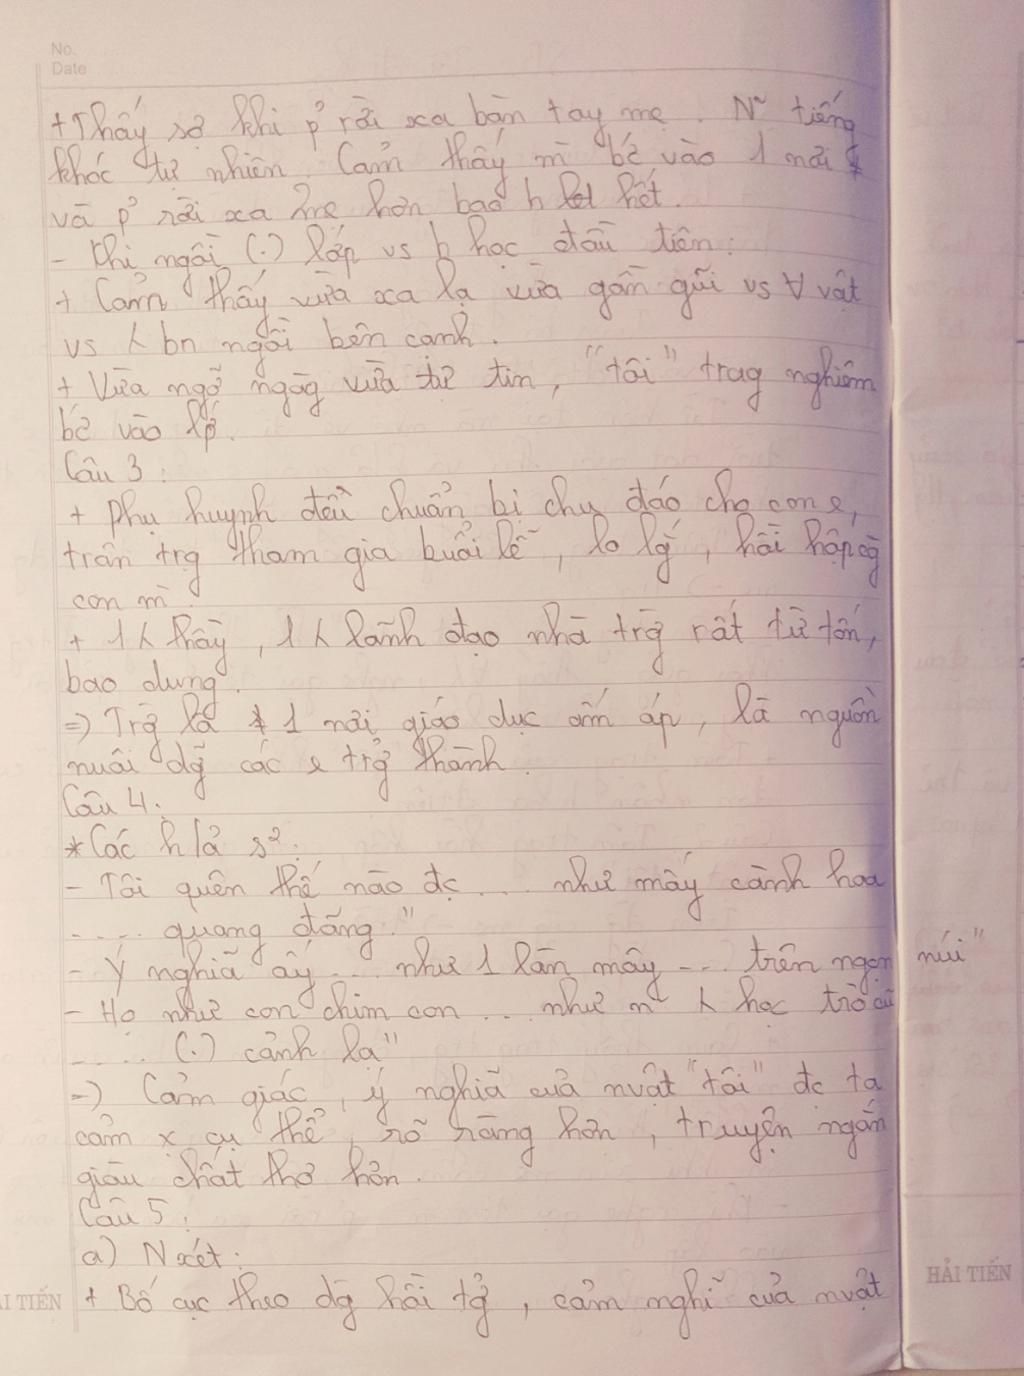 No.
Date
+ Thấy sợ khi p̉ rời xa bàn tay mẹ. N~ tiếng
khóc tự nhiên. Cảm thấy m̀ bé vào 1 nơi
và p̉ rời xa mẹ hơn bao h hết.
- Khi ngồi (.) lớp vs b học đầu tiên:
+ Cảm thấy vừa xa lạ vừa gần gũi vs ∀ vật
vs bn ngồi bên cạnh.
+ Vừa ngỡ ngàg vừa tự tin, "tôi" trag nghiêm
bé vào lớp.
Câu 3:
+ Phụ huynh đều chuẩn bị chu đáo cho con e,
trân trg tham gia buổi lễ, lo lg, hồi hộp cg̀
con m̀.
+ 1 thầy, 1 lãnh đạo nhà trg̀ rất từ tốn,
bao dung.
=> Trg̀ là 1 nơi giáo dục ấm áp, là nguồn
nuôi dg̃ các e trg̉ thành.
Câu 4:
* Các h/ả s²:
- Tôi quên thế nào đc ... như mấy cành hoa
.... quang đãng."
- Ý nghĩ ấy ... như 1 làn mây ... trên ngọn núi"
- Họ như con chim con ... như học trò cũ
.... (.) cảnh lạ"
=> Cảm giác, ý nghĩ của nvật "tôi" đc ta
cảm x cụ thể, rõ ràng hơn, truyện ngắn
giàu chất thơ hơn.
Câu 5:
a) N xét:
+ Bố cục theo dg̀ hồi tg̉, cảm nghĩ của nvật
HẢI TIẾN
I TIẾN